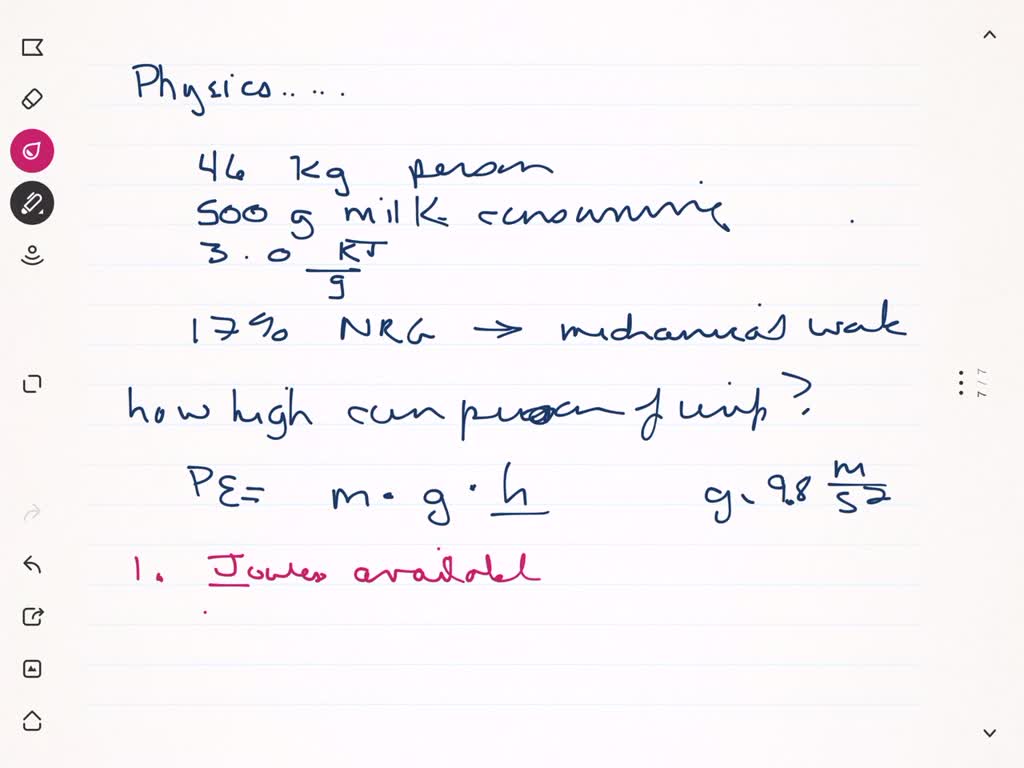 Physics.. ...
46 kg person
500 g milk consuming
3.0 KJ
g
17% NRG → mechanical work
how high can person jump?
PE = m · g · h g 9.8 m/s2
1. Joules availabl
7 / 7